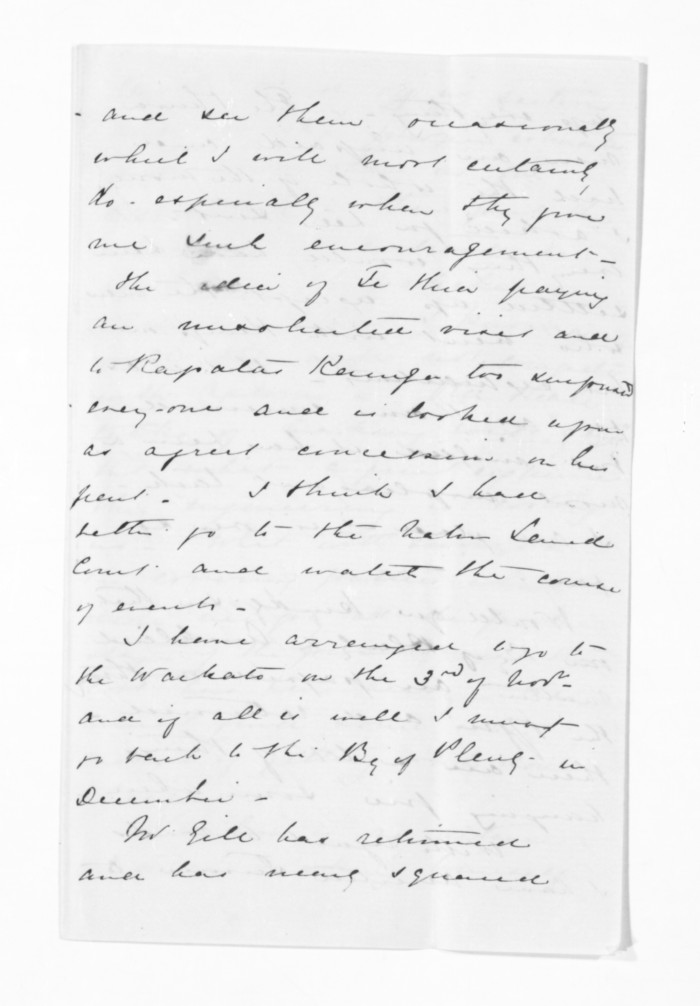 and see them occasionally
which I will most certainly
do. especially when they give
me such encouragement -
the idea of Te Hia paying
an unsolicited visit and
to Rapata's Kainga too surprised
every-one and is looked upon
as a great concession on his
part - I think I had
better go to the Native Land
Court and watch the course
of events -
I have arranged to go to
the Waikato on the 3rd of Novr -
and if all is well I must
go back to the Bay of Plenty in
December -
Mr Gill has returned
and has nearly squared